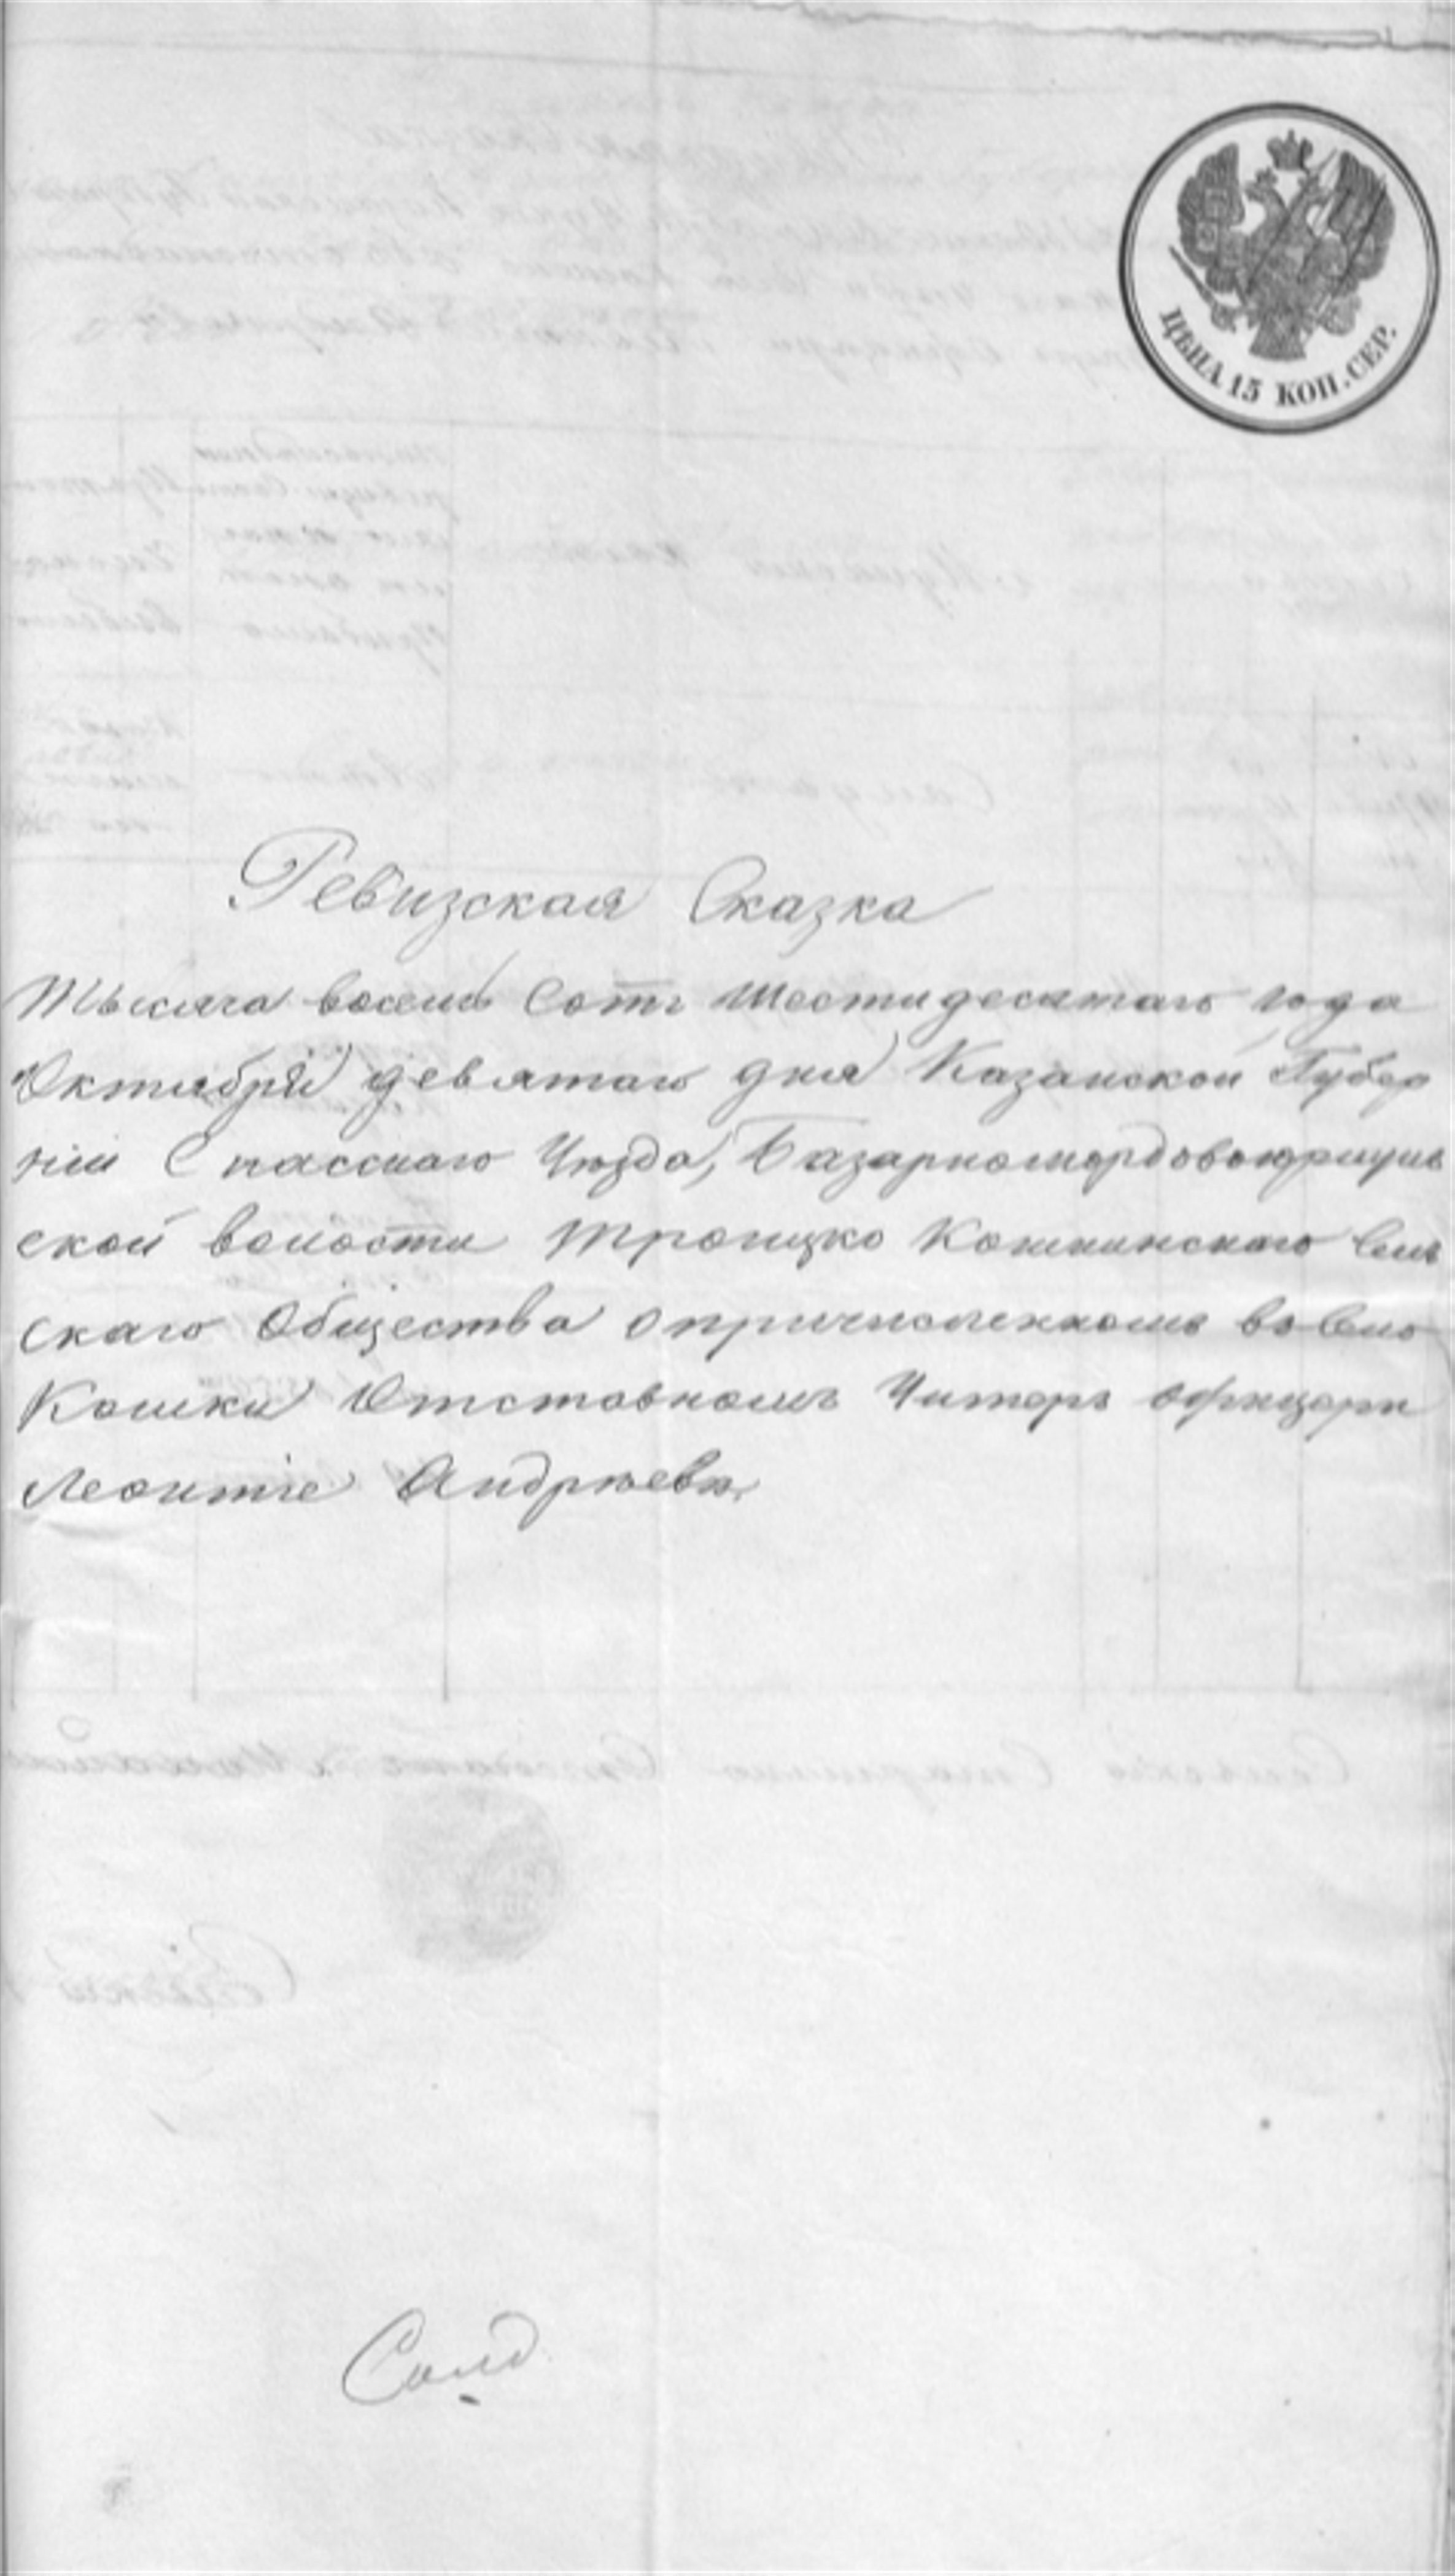 ЦѢНА 15 КОП. СЕР.
Ревизская Сказка
Тысяча восемь Сотъ Шестидесятаго года
Октября девятаго дня Казанской Губер
ніи Спасскаго Уѣзда,
ской волости Троицко Кошкинскаго Сель
скаго Общества о причисленномъ въ Село
Кошки Отставномъ Унтеръ Офицерѣ
Леонтіе Андрѣевѣ